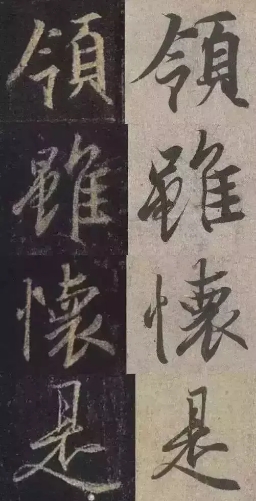 領領
雖雖
懷懷
是是